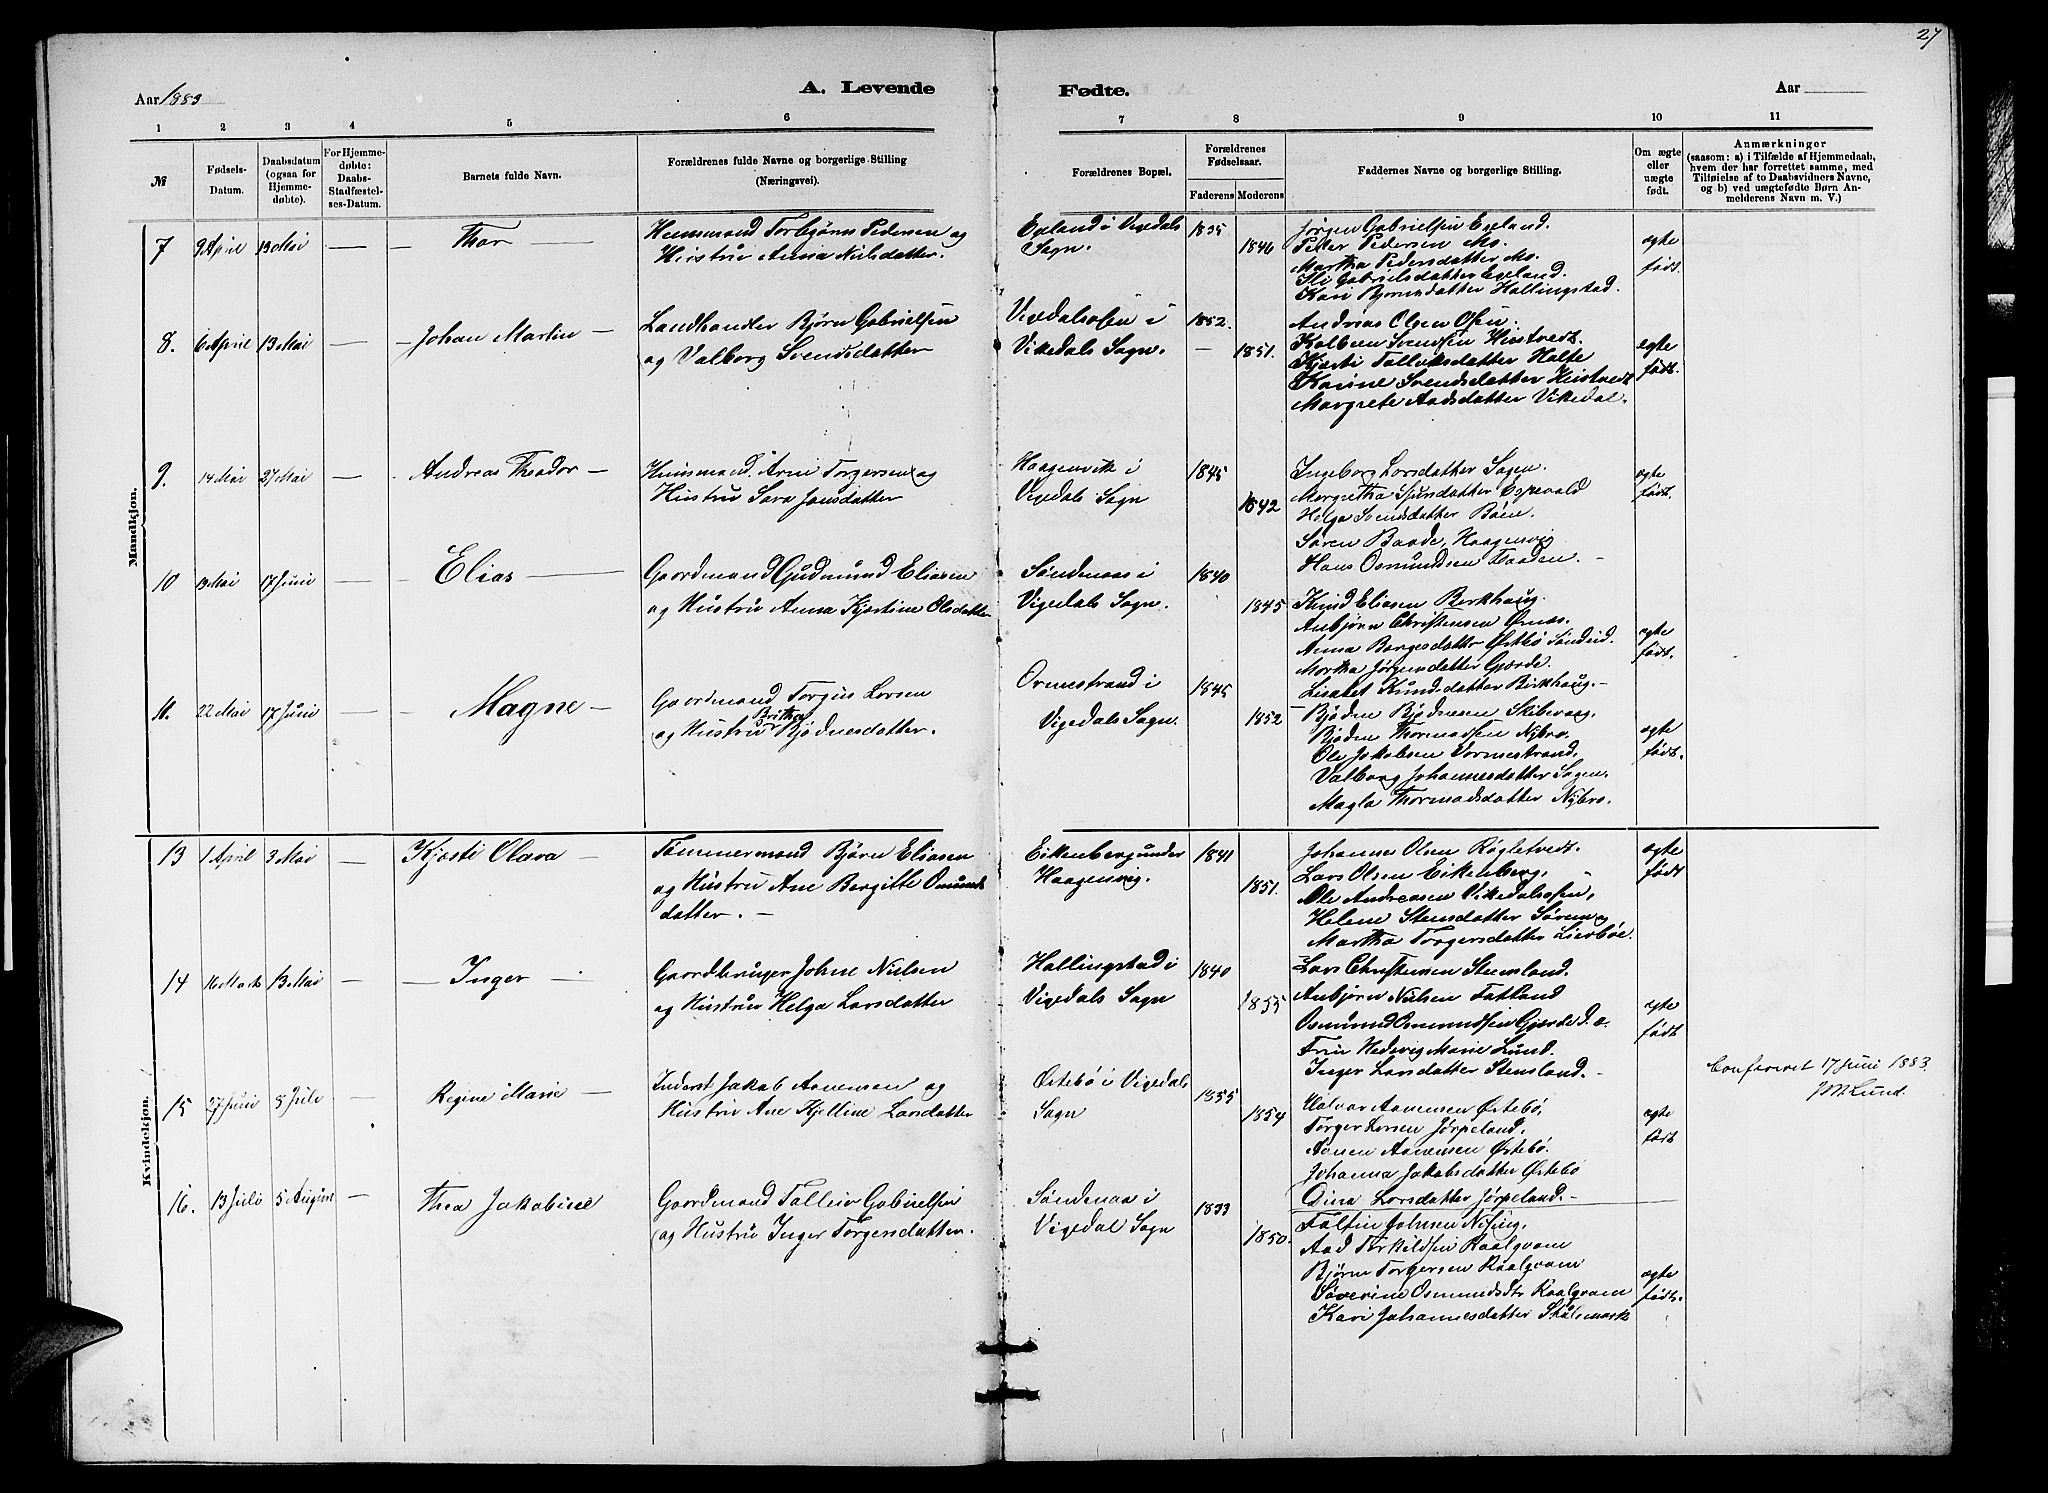 27
Aar 1883
A. Levende
Fødte.
Aar
1 2 3 4 5 6 7 8 9 10 11
№
Fødsels-Datum.
Daabsdatum (ogsaa for Hjemmedøbte).
For Hjemmedøbte: Daabs-Stadfæstelses-Datum.
Barnets fulde Navn.
Forældrenes fulde Navne og borgerlige Stilling
(Næringsvei).
Forældrenes Bopæl.
Forældrenes Fødselsaar.
Faderens Moderens
Faddernes Navne og borgerlige Stilling.
Om ægte eller uægte født.
Anmærkninger
(saasom: a) i Tilfælde af Hjemmedaab,
hvem der har forrettet samme, med
Tilføielse af to Daabsvidners Navne,
og b) ved uægtefødte Børn An-
melderens Navn m. V.)
Mandkjøn.
7 9 April 13 Mai — — Thor —
Huusmand Torbjørn Pedersen og
Hustru Anna Nielsdatter.
Egeland i Vigedals
Sogn.
1835
1846
Jørgen Gabrielsen Egeland.
Peder Pedersen Mo.
Martha Pedersdatter Mo.
Gabrielsdatter Egeland.
Kari Bjørnsdatter Hallingstad.
ægte
født.
8. 6 April 13 Mai — — Johan Martin —
Landhandler Bjørn Gabrielsen
og Valborg Svendsdatter
Vigedalsosen i
Vikedals Sogn.
1852. —
1851.
Andreas Olsen Osen.
Kolbeen Svendsen Hustvedt.
Kjæsti Tolleiksdatter Halte
Karine Svendsdatter Hustvedt
Margrete Aadsdatter Vikedal.
ægte
født.
9. 14 Mai 27 Mai — - Andreas Theodor —
Huusmand Arne Torgersen og
Hustru Sara Jansdatter
Haagenvik i
Vigedals Sogn
1845
1842
Ingeborg Larsdatter Sagen.
Margretha Espevold
Helga Svendsdatter Bøen.
Søren Baade, Haagenvig
Hans Osmundsen Traaden. —
ægte
født.
10 13 Mai 17 Juni — - Elias —
Gaardmand Gudmund Eliasen
og Hustru Anna Kjestine Olsdatter
Søndenaa i
Vigedals Sogn.
1840
1845
Knud Eliasen Berkhaug.
Anbjørn Christensen Ørnes.
Anna Børgesdatter Østbø Søndeid.
Martha Jørgensdatter Gjærde.
Lisabet Knudsdatter Birkhaug. —
ægte
født.
11. 22 Mai 17 Juni — — Magne —
Gaardmand Torgius Larsen
Britha
og Hustru Bjødnesdatter.
Ormestrand i
Vigedals Sogn.
1845
1852
Bjøden Bjødnesen Skibevaag.
Bjøden Thormodsen Nybro.
Ole Jakobsen Vormestrand.
Valborg Johannesdatter Sagen.
Magla Thormodsdatter Nybro.
ægte
født.
Kvindekjøn.
13 1 April 3 Mai — Kjæsti Olava —
Tømmermand Bjørn Eliasen
og Hustru Ane Bergitte Omunds
datter. —
Eikenberg under
Haagenvig.
1841
1851.
Johannes Olsen Røgletvedt.
Lars Olsen Eikenberg.
Ole Andreasen Vikedalsosen,
Helene Stensdatter
Martha Torgersdatter Lierbøe.
ægte
født
14 16 Marts 13 Mai — — Inger —
Gaardbruger Johne Nielsen
og Hustru Helga Larsdatter
Hallingstad i
Vigedals Sogn
1840
1855
Lars Christensen Stensland.
Anbjørn Nielsen Fatland
Osmund Osmundsen Gjerde d. æ.
Fru Hedevig Marie Lund.
Inger Larsdatter Stensland. —
ægte
født
Confereret 17 Juni 1883.
Lund.
15 27 Juni 8 Juli — Regine Marie —
Inderst Jakob Aanensen og
Hustru Ane Kjelline Larsdatter
Østebø i Vigedals
Sogn
1855
1854
Halvor Aanensen Østebø,
Torger Larsen Jørpeland,
Aanen Aanensen Østebø.
Johanna Jakobsdatter Østebø
Dina Larsdatter Jørpeland. —
ægte
født
16. 13 Juli 5 August — Thea Jakobine
Gaardmand Tolleiv Gabrielsen
og Hustru Inger Torgersdatter.
Søndenaa i
Vigedal Sogn
1833
1850.
Johnsen
Aad Torkildsen Raalgvam
Bjørn Torgersen Raalgvam
Severine Osmundsdtr Raalgvam
Kari Johannesdatter Skaalsmark
ægte
født.